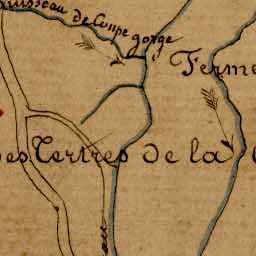 Ruisseau de Coupe gorge
Ferme
Des Tertres de la
au